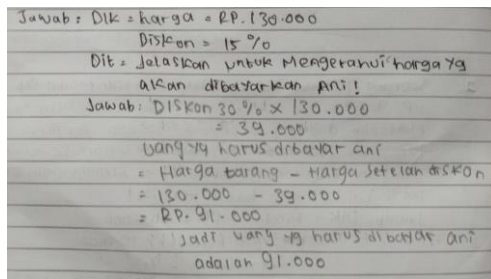 Jawab : Dik = harga = RP. 130.000
Diskon = 15 %
Dit = Jelaskan untuk Mengetahui harga yg
akan dibayarkan Ani !
Jawab : Diskon 30 % x 130.000
= 39.000
Uang yg harus dibayar ani
= Harga barang - Harga setelah diskon
= 130.000 - 39.000
= RP. 91.000
Jadi uang yg harus dibayar ani
adalah 91.000